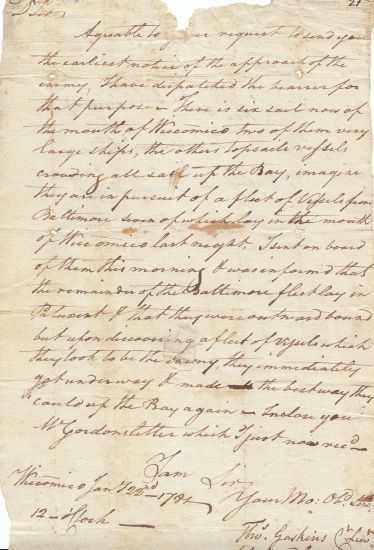 Sir,
Agreable to your request to send you
the earliest notice of the approach of the
enemy, I have dispatched the bearer for
that purpose – There is six sail now of
the mouth of Wiccomico two of them very
large ships, the others topsaile vessels
crouding all sail up the Bay, imagine
they are in pursuit of a fleet of Vessels from
Baltimore seven of which lay in the mouth
of Wicomico last night. I sent on board
of them this morning & was informd that
the remainder of the Baltimore fleet lay in
Patuxent & that they were outward bound
but upon discovering a fleet of Vessels which
they took to be the enemy, they immediately
got under way & made the best way they
could up the Bay again – Inclose you
Mr Gordons letter which I just now recd –
I am Sir
Wicomico Jany 22nd – 1781
Your Mo: Obt. Serv.
12 – oClock –
Thos. Gaskins